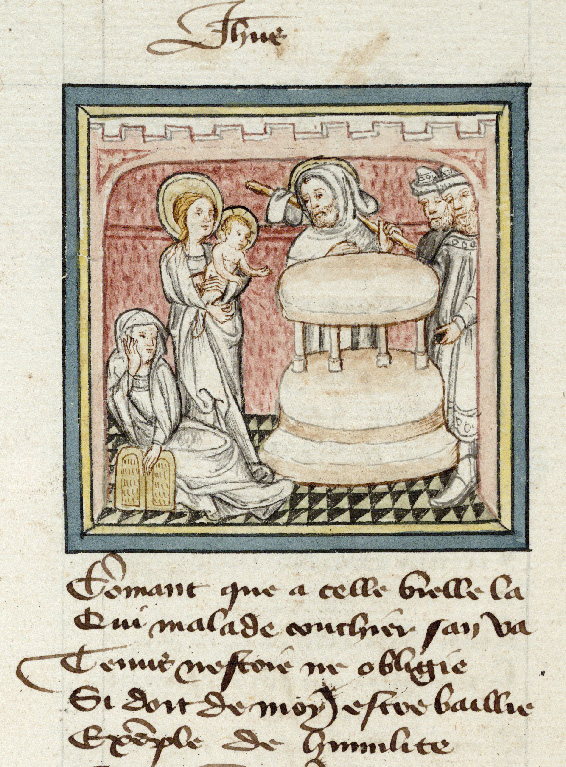 Jhūs
Cōmant que a celle vielle la
Qui malade couchier san va
Tenus nestoie ne obligie
Si doit de moy estre baillie
Exēple de humilite